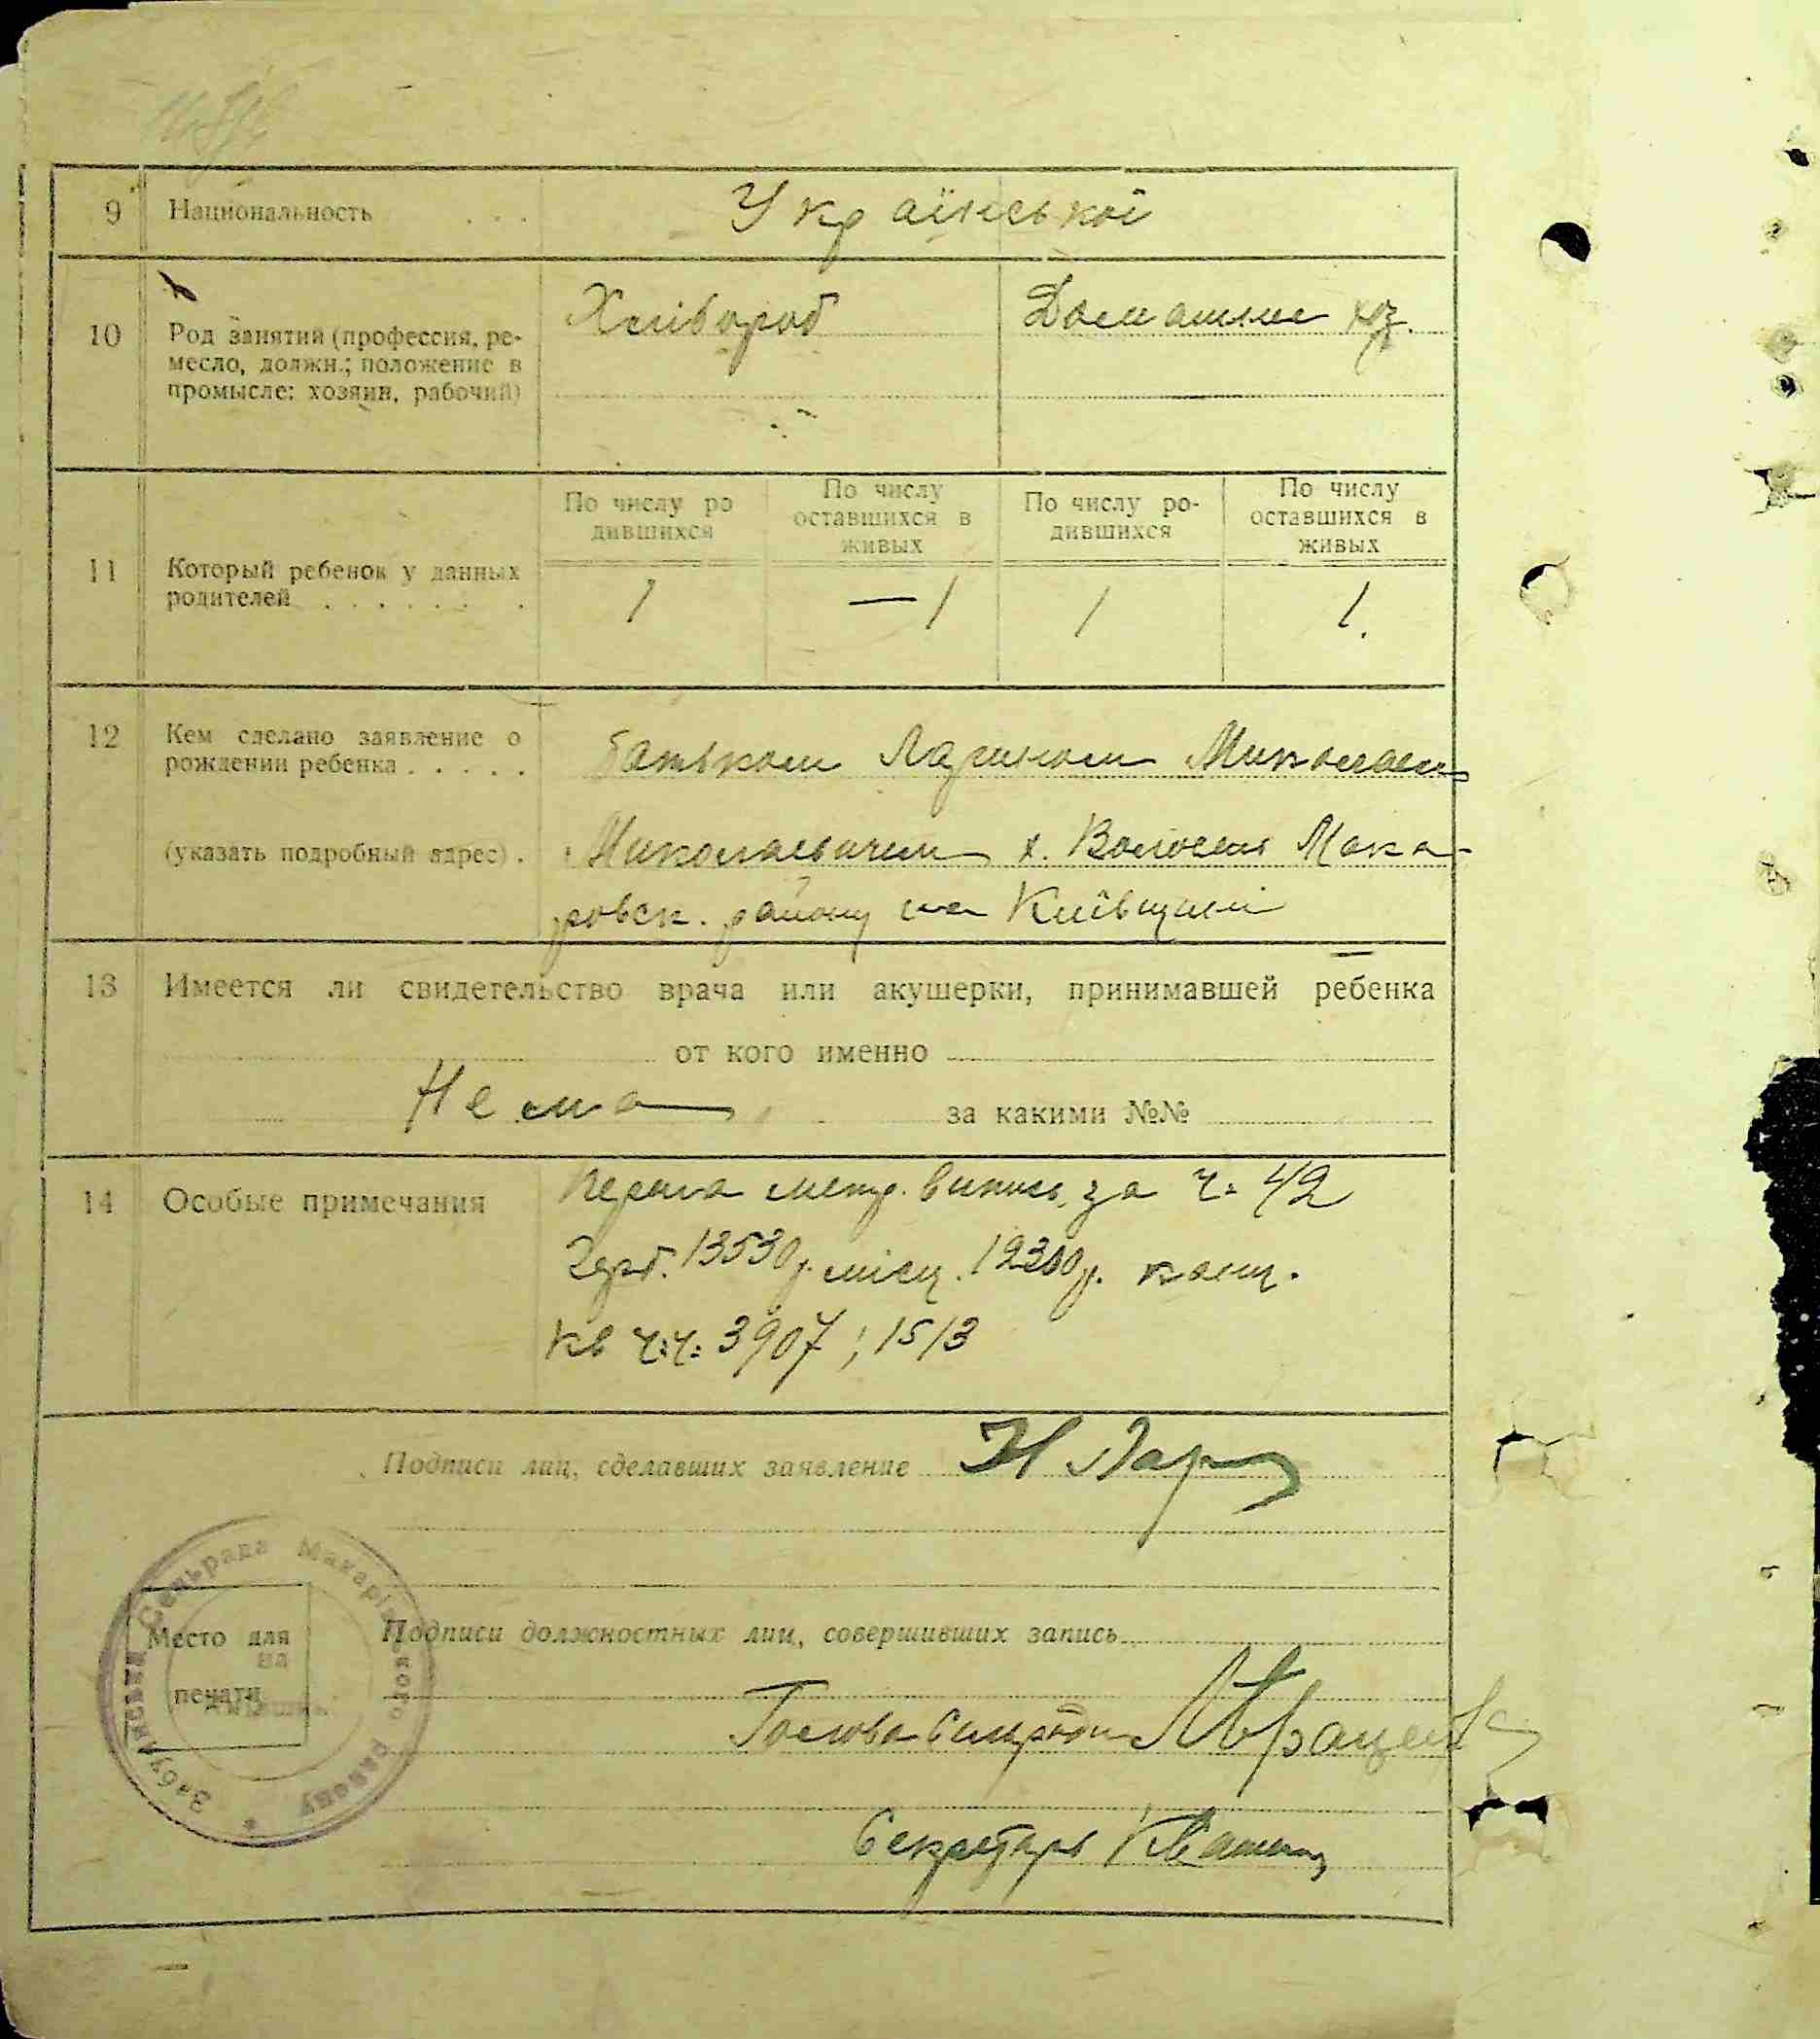 9 Национальность . . . Української
10 Род занятий (профессия, ре-
месло, должн.; положение в
промысле: хозяин, рабочий)
Хлібороб
Домашнє хоз.
11 Который ребенок у данных
родителей . . . . . . .
По числу ро
дившихся
По числу
оставшихся в
живых
По числу ро-
дившихся
По числу
оставшихся в
живых
1 — 1 1 1.
12 Кем сделано заявление о
рождении ребенка . . . . .
(указать подробный адрес) .
батьком Миколаєм
Миколаевичем х. Волосень Мака-
ровск. району на Київщині
13 Имеется ли свидетельство врача или акушерки, принимавшей ребенка
от кого именно
Нема за какими №№
14 Особые примечания
Перша метр. випись за ч: 42
Герб. місц. канц.
Кв ч:ч: 3907; 1513
Подписи лиц, сделавших заявление
Подписи должностных лиц, совершивших запись
Голова Сільради
Секретарь
Место для
печати
Забуянська Сельрада Макарівського району